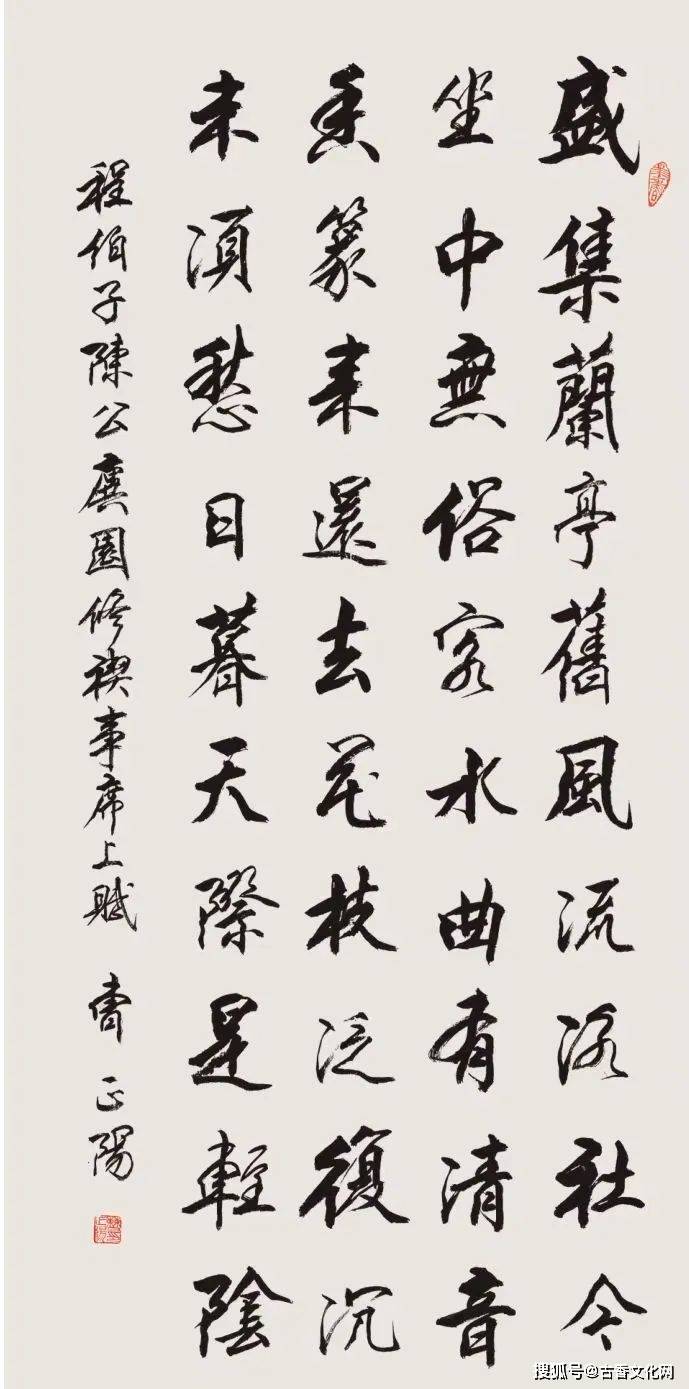 盛集蘭亭舊風流洛社今
坐中無俗客水曲有清音
香篆来還去花枝泛復沉
未須愁日暮天際是輕陰
程伯子陳公廙園修禊事席上賦 曹正陽
搜狐号@古香文化网